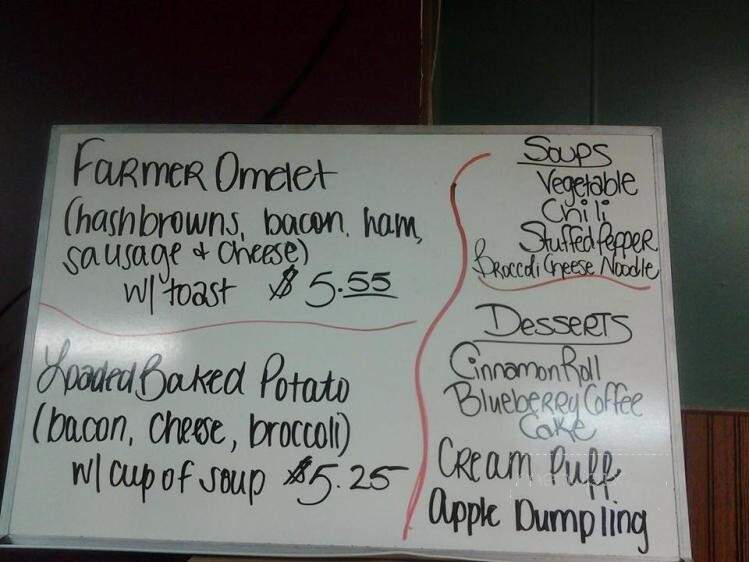 Farmer Omelet
(hashbrowns, bacon, ham,
sausage & cheese)
w/ toast $5.55
Loaded Baked Potato
(bacon, cheese, broccoli)
w/ cup of soup $5.25
Soups
Vegetable
Chili
Stuffed Pepper
Broccoli Cheese Noodle
Desserts
Cinnamon Roll
Blueberry Coffee
Cake
Cream Puff
Apple Dumpling